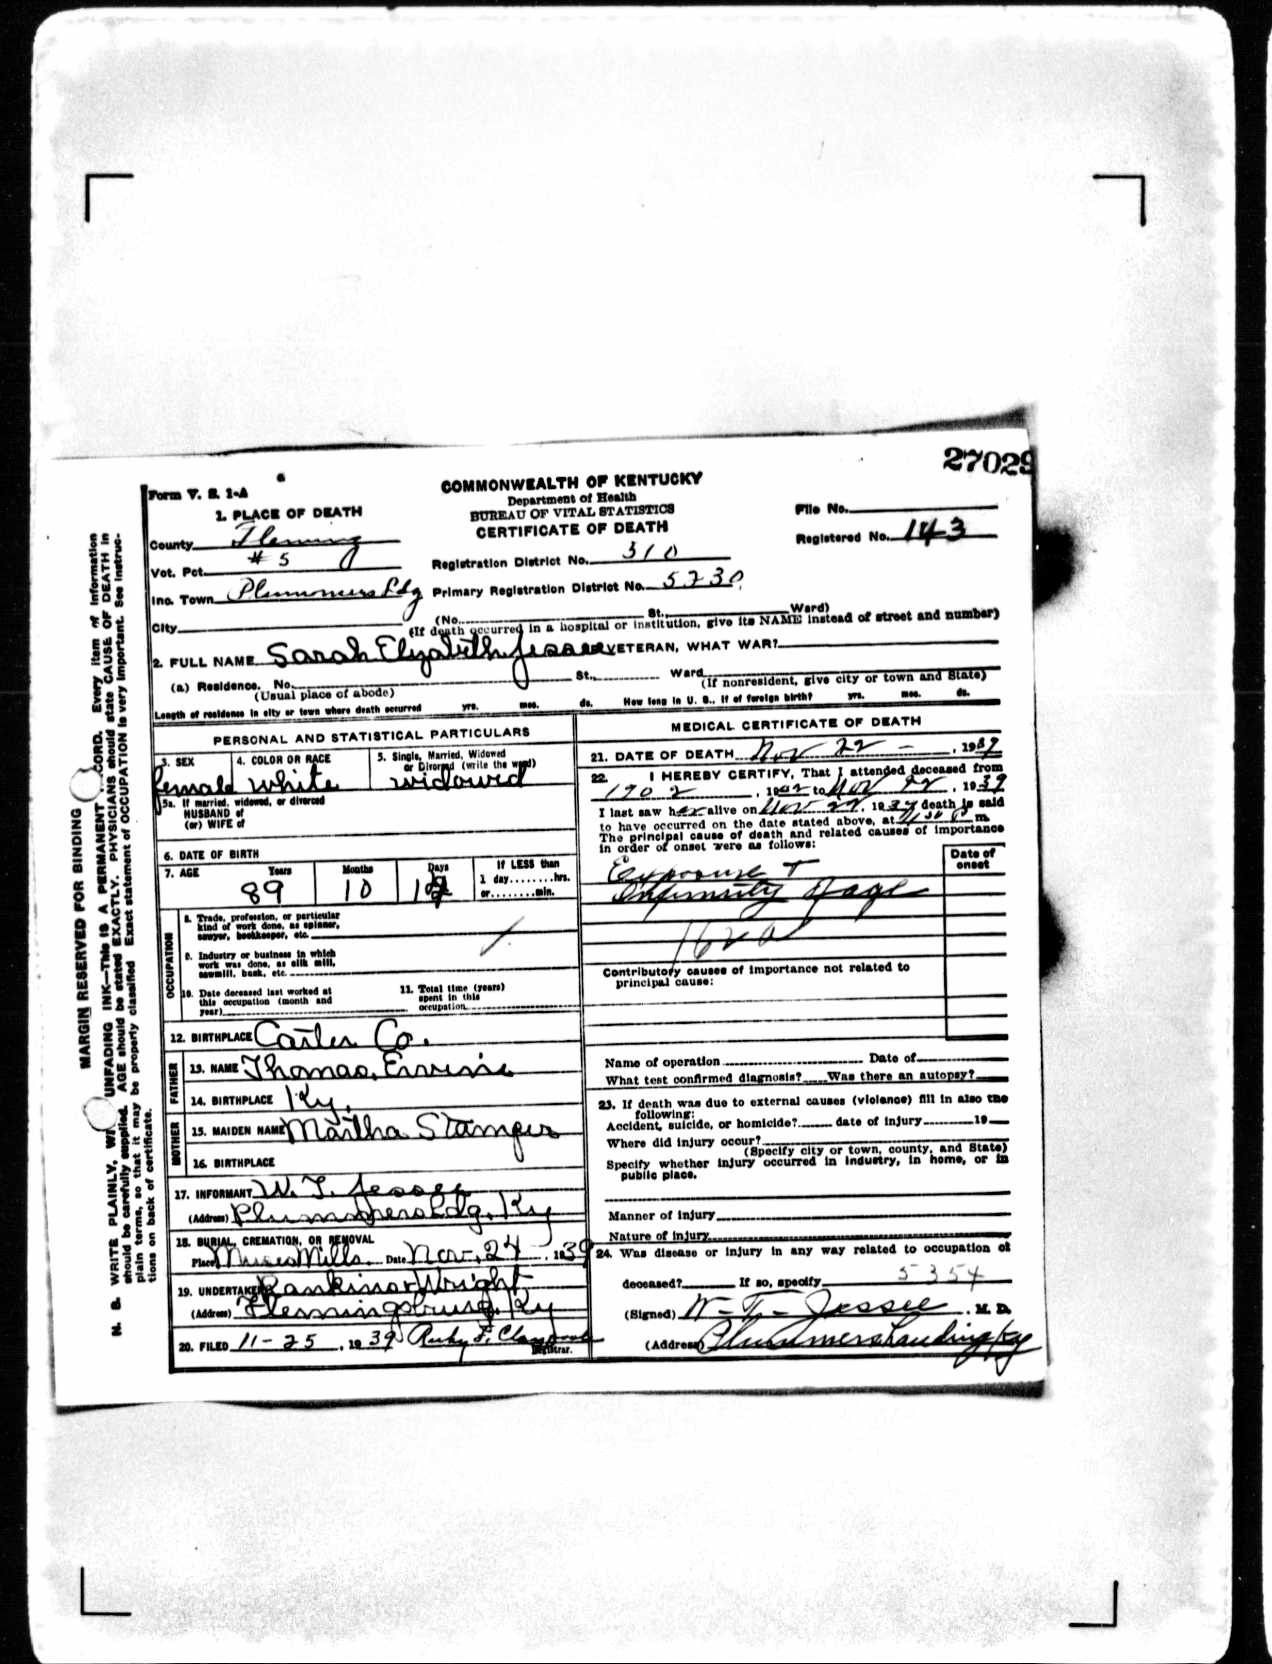 27029
Form V. S. 1-A
COMMONWEALTH OF KENTUCKY
Department of Health
BUREAU OF VITAL STATISTICS
CERTIFICATE OF DEATH
1. PLACE OF DEATH
File No.
Registered No. 143
County Fleming
Vot. Pct. # 5
Registration District No. 310
Inc. Town Plummers Ldg
Primary Registration District No. 5230
City
(No. St., Ward)
(If death occurred in a hospital or institution, give its NAME instead of street and number)
2. FULL NAME Sarah Elizabeth Jessee VETERAN, WHAT WAR?
(a) Residence. No. St., Ward
(Usual place of abode) (If nonresident, give city or town and State)
Length of residence in city or town where death occurred yrs. mos. ds. How long in U. S., if of foreign birth? yrs. mos. ds.
PERSONAL AND STATISTICAL PARTICULARS
3. SEX
female
4. COLOR OR RACE
white
5. Single, Married, Widowed
or Divorced (write the word)
widowed
5a. If married, widowed, or divorced
HUSBAND of
(or) WIFE of
6. DATE OF BIRTH
7. AGE Years Months Days If LESS than
1 day........hrs.
or........min.
89 10
OCCUPATION
8. Trade, profession, or particular
kind of work done, as spinner,
sawyer, bookkeeper, etc.
9. Industry or business in which
work was done, as silk mill,
sawmill, bank, etc.
10. Date deceased last worked at
this occupation (month and
year)
11. Total time (years)
spent in this
occupation
12. BIRTHPLACE Carter Co.
FATHER
13. NAME Thomas Ervine
14. BIRTHPLACE Ky.
MOTHER
15. MAIDEN NAME Martha Stamper
16. BIRTHPLACE
17. INFORMANT W. T. Jessee
(Address) Plummers Ldg, Ky
18. BURIAL, CREMATION, OR REMOVAL
Place Muses Mills Date Nov. 24, 1939
19. UNDERTAKER Rankins Wright
(Address) Flemingsburg, Ky
20. FILED 11-25, 1939 Ruby F.
Registrar.
MEDICAL CERTIFICATE OF DEATH
21. DATE OF DEATH Nov 22 -, 1939
22. I HEREBY CERTIFY, That I attended deceased from
1902, 1902 to Nov 22, 1939
I last saw her alive on Nov 22, 1939 death is said
to have occurred on the date stated above, at m.
The principal cause of death and related causes of importance
in order of onset were as follows:
Date of
onset
Exposure +
Infirmity of age
162 a
Contributory causes of importance not related to
principal cause:
Name of operation Date of
What test confirmed diagnosis? Was there an autopsy?
23. If death was due to external causes (violence) fill in also the
following:
Accident, suicide, or homicide? date of injury 19
Where did injury occur?
(Specify city or town, county, and State)
Specify whether injury occurred in industry, in home, or in
public place.
Manner of injury
Nature of injury
24. Was disease or injury in any way related to occupation of
5354
deceased? If so, specify
(Signed) W-T- Jessee, M. D.
(Address) Plummers Landing Ky
MARGIN RESERVED FOR BINDING
N. B. WRITE PLAINLY, UNFADING INK—This IS A PERMANENT Every item of information
should be carefully supplied. AGE should be stated EXACTLY. PHYSICIANS should state CAUSE OF DEATH in
plain terms, so that it may be properly classified. Exact statement of OCCUPATION is very important. See instruc-
tions on back of certificate.